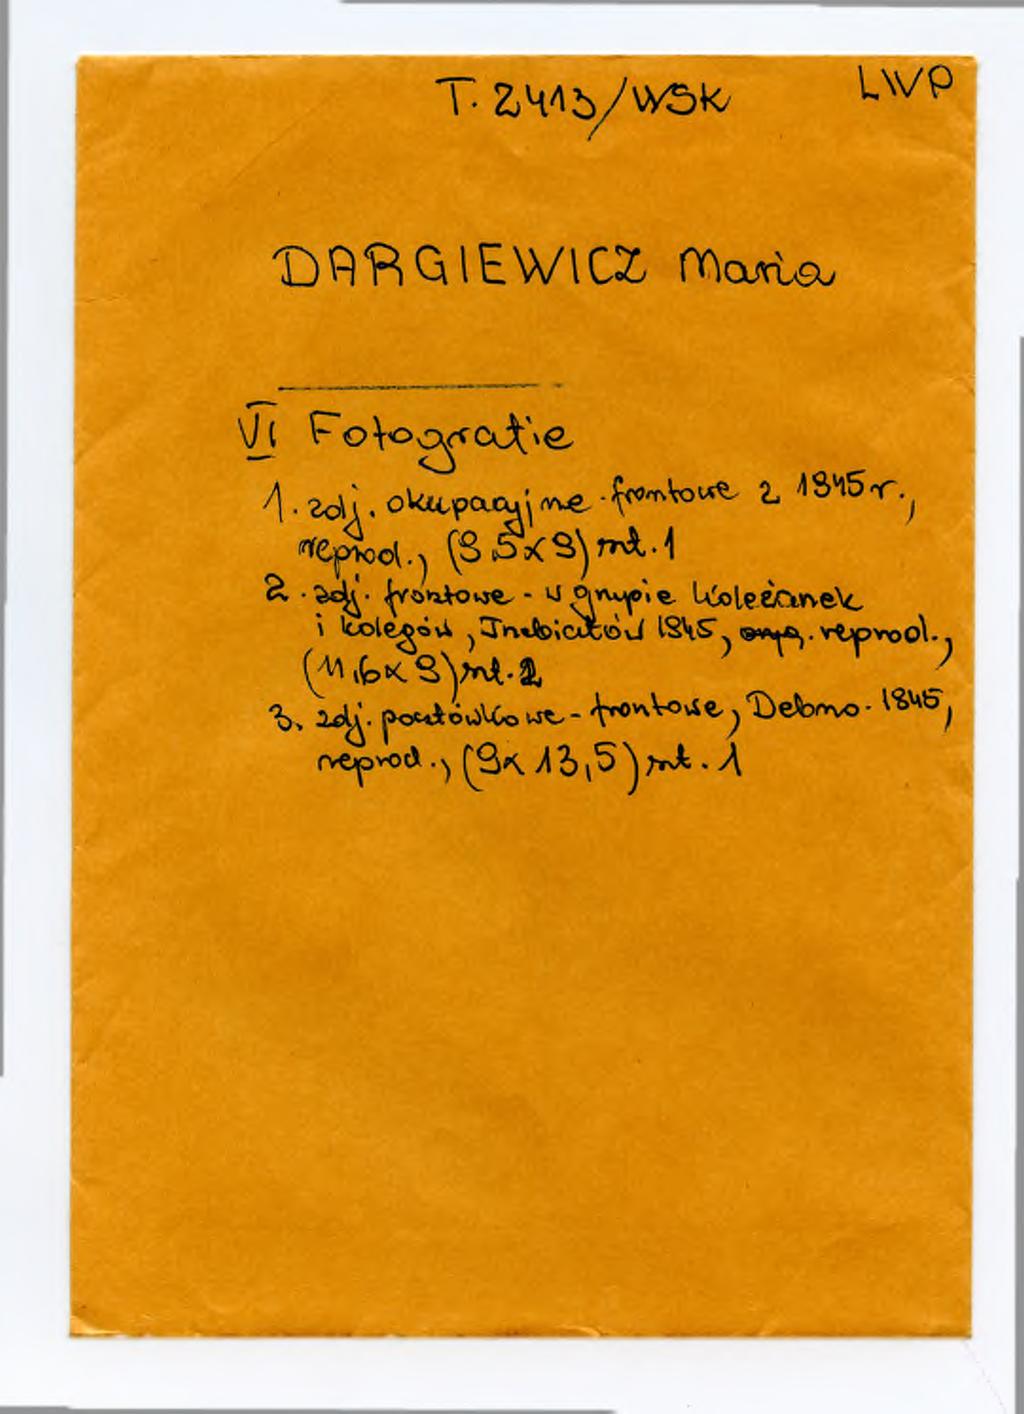 T. 2413/WSK
LWP
DARGIEWICZ Maria
VI Fotografie
1. zdj. okupacyjne - frontowe z 1945 r.,
reprod., (9,5x9) szt. 1
2. zdj. frontowe - w grupie koleżanek
i kolegów, 1945, reprod.,
(11,6x9) szt. 2
3. zdj. pocztówkowe - frontowe, Debno - 1945,
reprod., (9x13,5) szt. 1